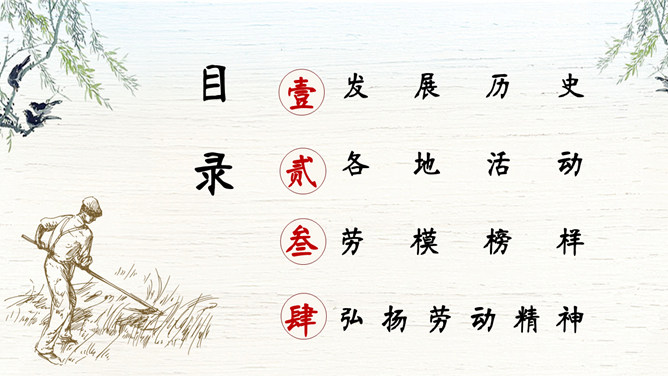 目录
壹 发展历史
贰 各地活动
叁 劳模榜样
肆 弘扬劳动精神